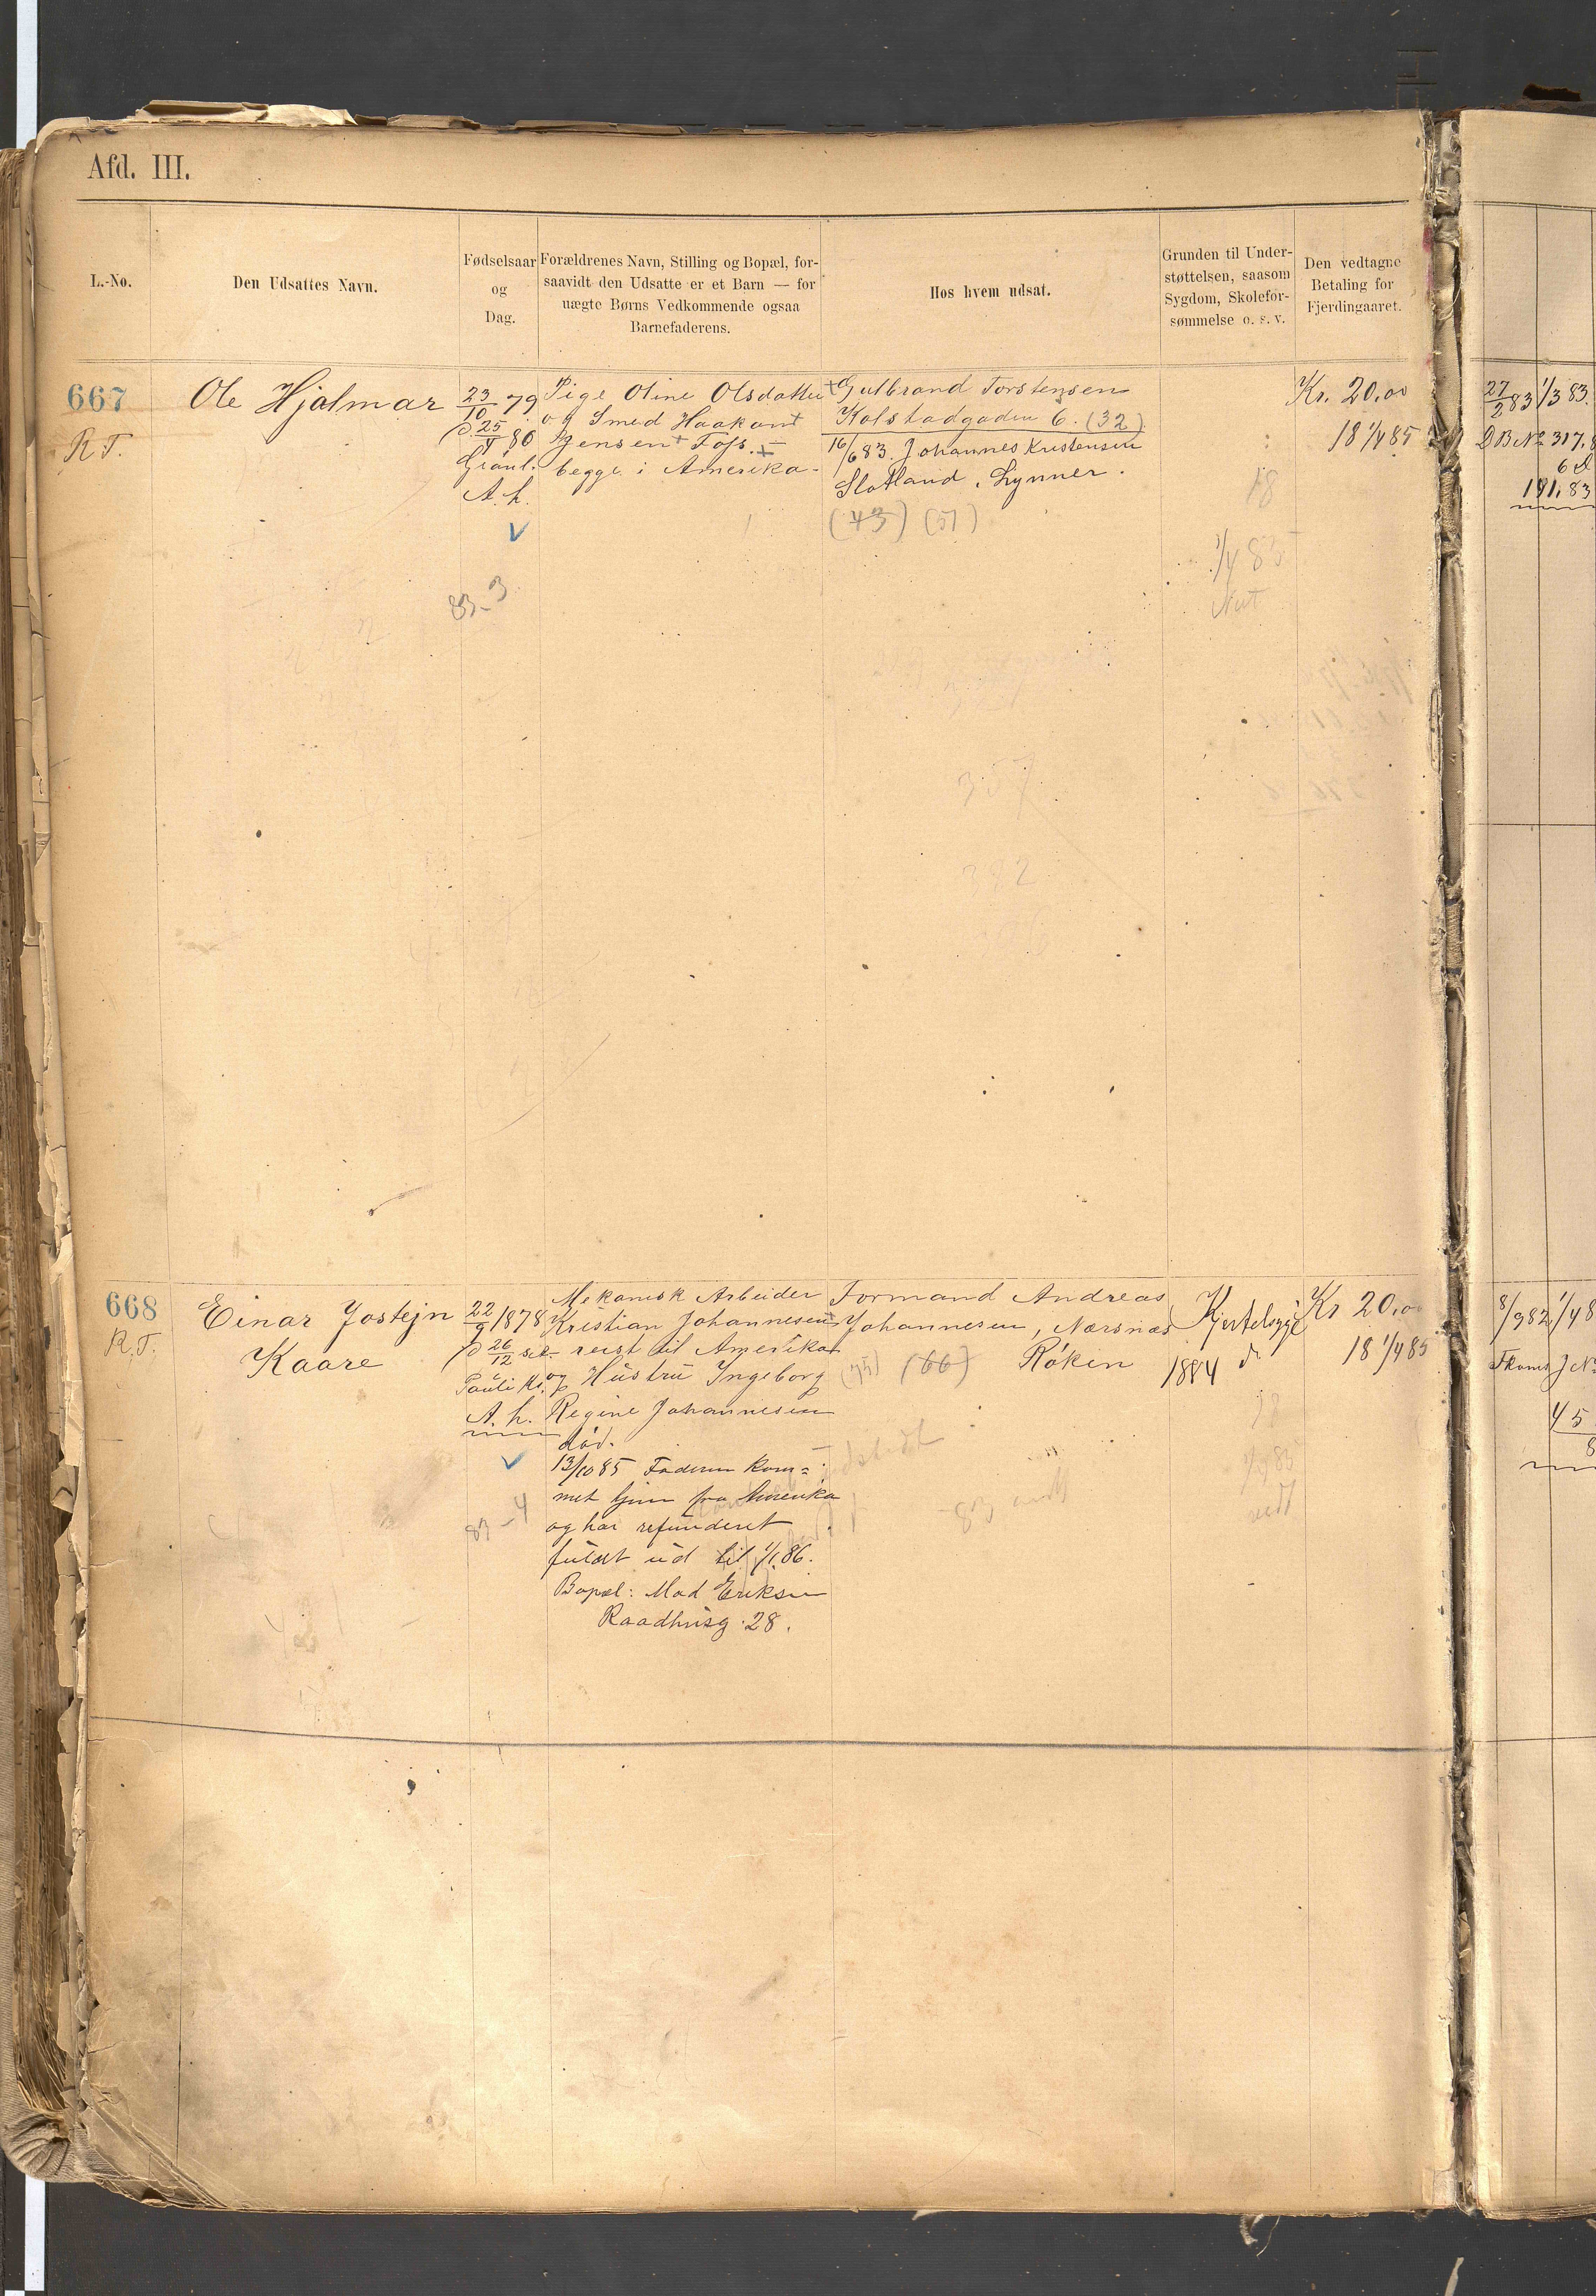 Afd. III.
L.-No.
Den Udsattes Navn.
Fødselsaar
og
Dag.
Forældrenes Navn, Stilling og Bopæl, for-
saavidt den Udsatte er et Barn — for
uægte Børns Vedkommende ogsaa
Barnefaderens.
Hos hvem udsat.
Grunden til Under-
støttelsen, saasom
Sygdom, Skolefor-
sømmelse o. s. v.
Den vedtagne
Betaling for
Fjerdingaaret.
667
R.T.
Ole Hjalmar
23/10 79
25/4 80
A. h.
83-3
Pige Oline Olsdatter
og Smed Haakon
Jensen Foss.
begge i Amerika.
Gulbrand Torstensen
Kolstadgaden 6. (32)
16/6 83. Johannes Kristensen
Slotland, Lynner.
(43) (51)
18
1/4 85
Kr. 20,00
18 1/4 85
27/2 83 1/3 83.
DB No 317.8
191,83
668
R.T.
Einar Jostejn
Kaare
22/9 1878
26/12 s.a.
Pauli K.
A. h.
83-4
Mekanisk Arbeider
Kristian Johannesen
reist til Amerika
og Hustru Ingeborg
Regine Johannesen
död.
13/10 85 Faderen kom=
met hjem fra Amerika
og har refunderet
fuldt ud til 1/1 86.
Bopæl: Mad Eriksen
Raadhusg. 28.
Formand Andreas
Johannesen, Nærsnæs
Röken
(75) (66)
Kjertelsyge
1884
Kr 20,00
18 1/4 85
8/9 82 1/4 8
45
8
357
382